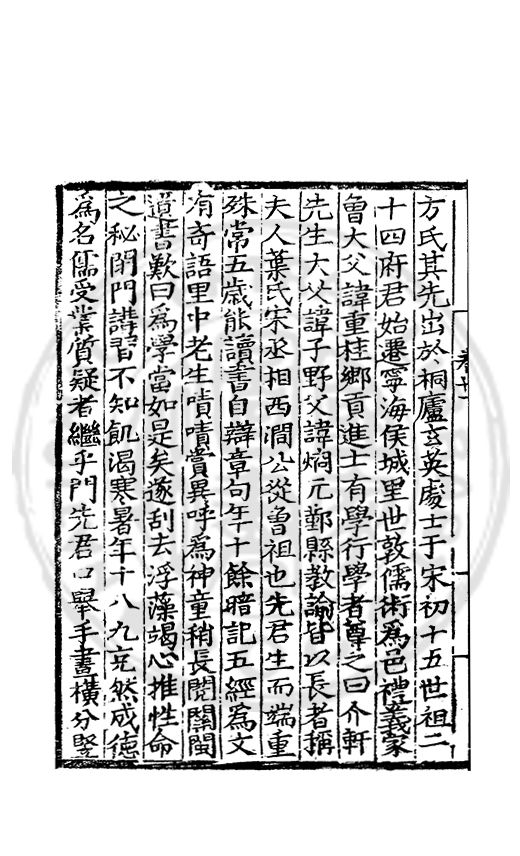 方氏其先出於桐廬玄英處士于宋初十五世祖二
十四府君始遷寧海侯城里世敦儒術為邑禮義家
曾大父諱重桂鄉貢進士有學行學者尊之曰介軒
先生大父諱子野父諱烱元鄞縣教諭皆以長者稱
夫人葉氏宋丞相西澗公從曾祖也先君生而端重
殊常五歲能讀書自辯章句年十餘暗記五經為文
有奇語里中老生嘖嘖賞異呼為神童稍長閱關閩
遺書歎曰為學當如是矣遂刮去浮藻竭心推性命
之秘閉門講習不知飢渴寒暑年十八九充然成德
為名儒受業質疑者繼乎門先君口舉手畫橫分豎